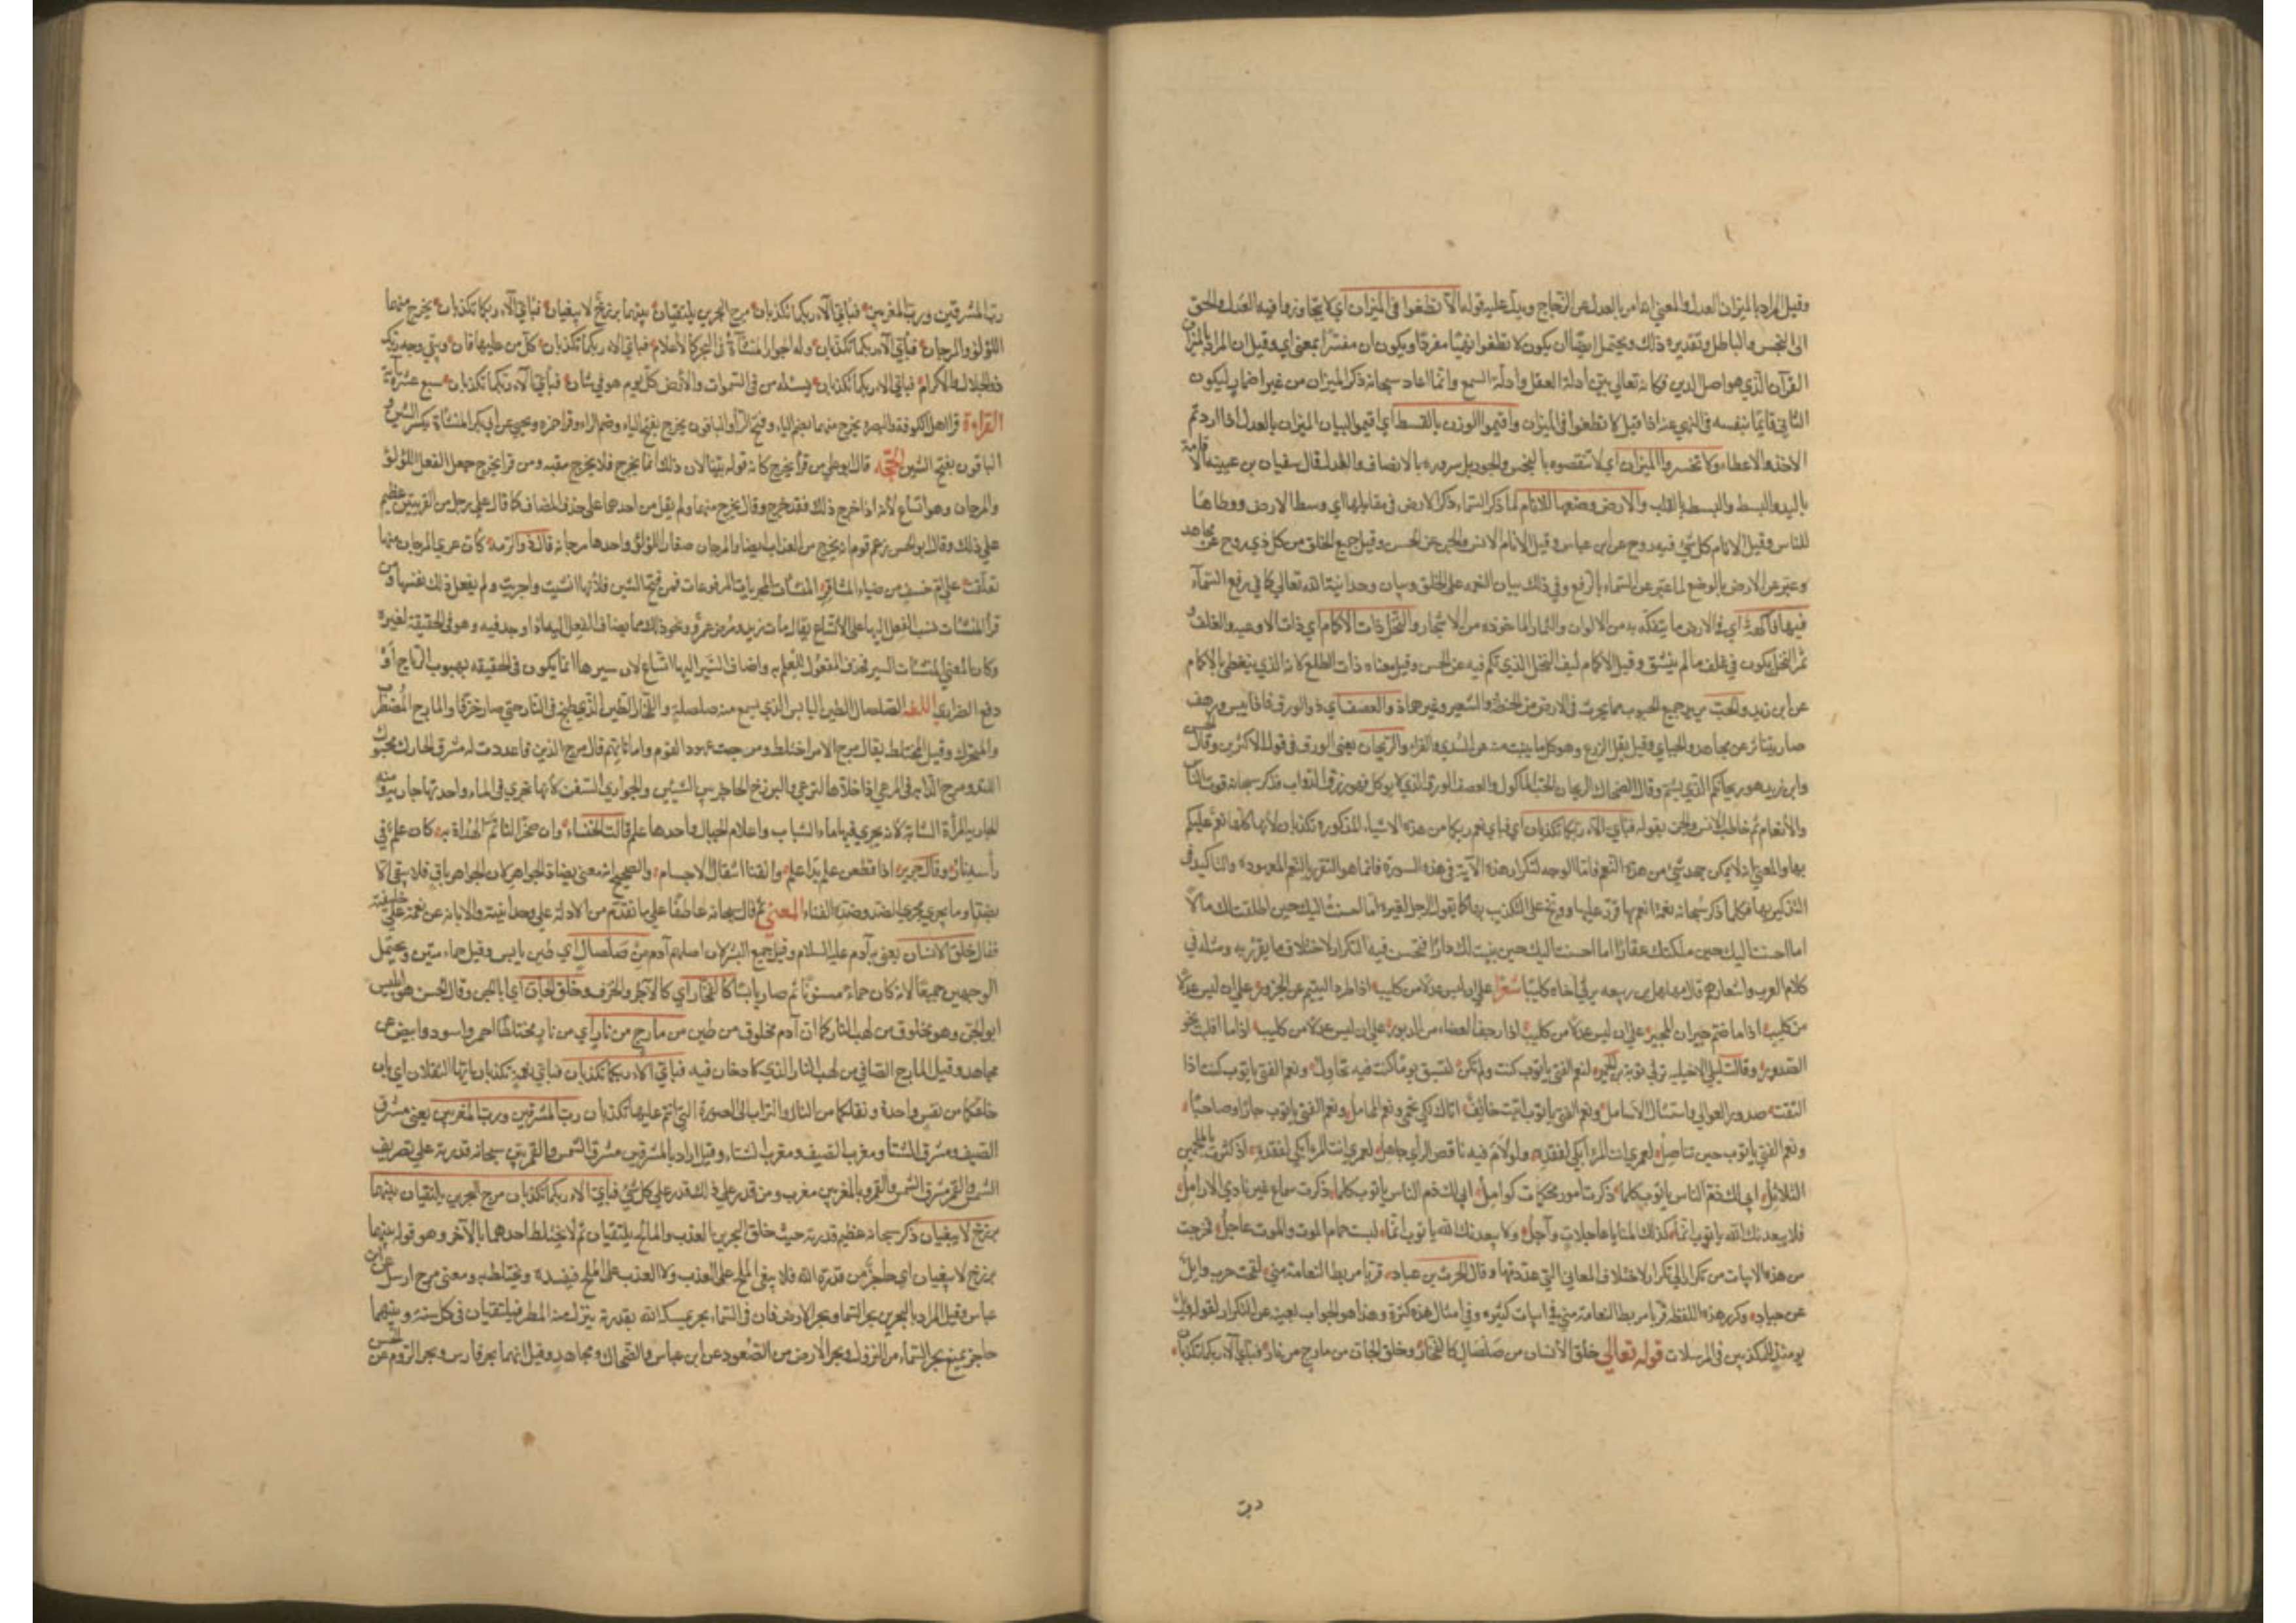 وقيل المراد بالميزان العدل والمعنى انه امر بالعدل عن الزجاج ويدل عليه قوله الا تطغوا في الميزان اي لا تتجاوزوا فيه العدل والحق
الى البخس والباطل وتقديره ذلك ويحتمل ايضا ان يكون لا تطغوا نهيا مفردا ويكون ان مفسرا بمعنى اي وقيل ان المراد بالميزان
القرآن الذي هو اصل الدين فكانه تعالى بين ادلة العقل وادلة السمع وانما اعاد سبحانه ذكر الميزان من غير اضمار ليكون
الثاني قايما بنفسه في النهي عنه اذا قيل لا تطغوا في الميزان واقيموا الوزن بالقسط اي اقيموا لسان الميزان بالعدل اذا اردتم
الاخذ والاعطاء ولا تخسروا الميزان اي لا تنقصوه بالبخس والجور بل سووه بالانصاف والعدل قال سفيان بن عيينه الاقامة
باليد والقسط بالقلب والارض وضعها للانام لما ذكر السماء ذكر الارض في مقابلها اي وسط الارض ووطاها
للناس وقيل الانام كل شئ فيه روح عن ابن عباس وقيل الانام الانس والجن عن الحسن وقيل جميع الخلق من كل ذي روح عن مجاهد
وعبر عن الارض بالوضع لما عبر عن السماء بالرفع وفي ذلك بيان النعمه على الخلق وبيان وحدانية الله تعالى كما في رفع السمآء
فيها فاكهة اي في الارض ما يتفكه به من الالوان والثمار الماخوذه من الاشجار والنخل ذات الاكمام اي ذات الاوعيه والغلف و
ثمر النخل يكون في غلف ما لم ينشق وقيل الاكمام ليف النخل الذي تكم فيه عن الحسن وقيل معناه ذات الطلع لانه الذي يتغطى بالاكمام
عن ابن زيد والحب يريد جميع الحبوب مما يحرث في الارض من الحنطة والشعير وغيرهما ذو العصف اي ذو الورق فاذا يبس وديس
صار تبنا عن مجاهد والجبائي وقيل بقل الزرع وهو كل ما ينبت منه عن السدي والفراء والريحان يعني الورق في قول الاكثرين وقال الحسن
وابن زيد هو ريحانكم الذي يشم وقال الضحاك الريحان الحب المأكول والعصف الورق الذي لا يوكل فهو رزق الدواب فذكر سبحانه قوت الناس
والانعام ثم خاطب الانس والجن بقوله فباي الاء ربكما تكذبان اي فباي نعم ربكما من هذه الاشياء المذكورة تكذبان لانها كلها نعم عليكم
بها والمعنى انه لا يمكن جحد شئ من هذه النعم فاما الوجه لتكرار هذه الآية في هذه السورة فانما هو التقرير بالنعم المعدوده والتاكيد في
التذكير بها فكلما ذكر سبحانه نعمة انعم بها قرر عليها ووبخ على التكذيب بها كما يقول الرجل لغيره اما احسنت اليك حين اطلقت لك مالا
اما احسنت اليك حين ملكتك عقارا اما احسنت اليك حين بنيت لك دارا فتحسن فيه التكرار لاختلاف ما يقرره به ومثله في
كلام العرب واشعارهم قال مهلهل بن ربيعه يرثي اخاه كليبا شعرا على ان ليس عدلا من كليب اذا طرد اليتيم عن الجزور على ان ليس عدلا
من كليب اذا ما ضيم جيران المجير على ان ليس عدلا من كليب اذا رجف العضاه من الدبور على ان ليس عدلا من كليب اذا ما اعلنت نجوى
الصدور وقالت ليلى الاخيليه ترثي توبة بن الحمير لنعم الفتى ياتوب كنت ولم تكن لتسبق يوما كنت فيه تحاول ونعم الفتى ياتوب كنت اذا
التقت صدور العوالي واستشال الاسافل ونعم الفتى ياتوب كنت لخائف اتاك لكي يحمى ونعم المحامل ونعم الفتى ياتوب جارا وصاحبا
ونعم الفتى ياتوب حين تناضل لعمري لانت المرء ابكي لفقده ولو لام فيه ناقص الرأي جاهل لعمري لانت المرء ابكي لفقده اذ كثرت بالملحمين
التلاتل ابى لك ذم الناس ياتوب كلما ذكرت امور محكمات كوامل ابى لك ذم الناس ياتوب كلما ذكرت سماح حين تاوي الارامل
فلا يبعدنك الله ياتوب انما كذاك المنايا عاجلات وآجل ولا يبعدنك الله ياتوب انما لقيت حمام الموت والموت عاجل فخرجت
من هذه الابيات من تكرار الى تكرار لاختلاف المعاني التي عددتها وقال الحرث بن عباد قربا مربط النعامة مني لقحت حرب وائل
عن حيال وكرر هذه اللفظة قربا مربط النعامة مني في ابيات كثيره وفي امثال هذه كثرة وهذا هو الجواب بعينه عن التكرار لقوله ويل
يومئذ للمكذبين في المرسلات قوله تعالى خلق الانسان من صلصال كالفخار وخلق الجان من مارج من نار فباي آلاء ربكما تكذبان
رب
رب المشرقين ورب المغربين فباي آلاء ربكما تكذبان مرج البحرين يلتقيان بينهما برزخ لا يبغيان فباي آلاء ربكما تكذبان يخرج منهما
اللؤلؤ والمرجان فباي آلاء ربكما تكذبان وله الجوار المنشآة في البحر كالاعلام فباي الاء ربكما تكذبان كل من عليها فان ويبقى وجه ربك
ذو الجلال والاكرام فباي الاء ربكما تكذبان يسئله من في السموات والارض كل يوم هو في شان فباي آلاء ربكما تكذبان سبع عشرة آية
القراءة قرا اهل الكوفة والبصرة يخرج منهما بضم الياء وفتح الرآ والباقون يخرج بفتح الياء وضم الراء وقرا حمزه ويحيى عن ابي بكر المنشئات بكسر الشين و
الباقون بفتح الشين الحجة قال ابو علي من قرأ يخرج كانه قوله بينا لان ذلك انما يخرج فلا يخرج بنفسه ومن قرا يخرج جعل الفعل للؤلؤ
والمرجان وهو اتساع لانه اذا اخرج ذلك فقد خرج وقال يخرج منهما ولم يقل من احدهما على حذف المضاف كما قال على رجل من القريتين عظيم
على ذلك وقال ابو الحسن زعم قوم انه يخرج من العذب ايضا والمرجان صغار اللؤلؤ واحدها مرجانه قال ذو الرمه كان عرى المرجان منها
تعلقت على ام خشف من ظباء المشاقر المنشآت المجريات المرفوعات فمن فتح الشين فلانها انشئت واجريت ولم يفعل ذلك بنفسها ومن
قرأ المنشئات نسب الفعل اليها على الاتساع يقال مات زيد ومرض عمرو ونحو ذلك مما يضاف الفعل اليه اذا وجد فيه وهو في الحقيقة لغيره
وكان المعنى المنشئات السير فحذف المفعول للعلم به واضاف السير اليها اتساعا لان سيرها انما يكون في الحقيقه بهبوب الرياح او
دفع الصراري اللغة الصلصال الطين اليابس الذي يسمع منه صلصلة والفخار الطين الذي طبخ في النار حتى صار خزفا والمارج المضطرب
والمتحرك وقيل المختلط يقال مرج الامر اختلط ومرجت عهود القوم واماناتهم قال مرج الدين فاعددت له مشرف الحارك محبوك
الكتد ومرج الدابه في المرعى اذا خلاها لترعى والبرزخ الحاجز بين الشيئين والجواري السفن لانها تجري في الماء واحدتها جاريه ومنه
الجاريه للمرأة الشابة لانه يجري فيها ماء الشباب واعلام الجبال واحدها علم قالت الخنساء وان صخرا لتاتم الهداة به كانه علم في
رأسه نار وقال جرير اذا قطعن علما بدا علم والفناء انتقال الاجسام والصحيح انه معنى يضاد الجواهر لان الجواهر باق فلا ينتفي الا
بضد او ما يجري مجرى الضد وضده الفناء المعنى ثم قال سبحانه عاطفا على ما تقدم من الادلة على وحدانيته والابانه عن نعمته على خليقته
فقال خلق الانسان يعني به آدم عليه السلام وقيل جميع البشر لان اصلهم آدم من صلصال اي طين يابس وقيل حماء منتن ويحتمل
الوجهين جميعا لانه كان حماء مسنونا ثم صار يابسا كالفخار اي كالآجر والخزف وخلق الجان اي ابا الجن وقال الحسن هو ابليس
ابو الجن وهو مخلوق من لهب النار كما ان آدم مخلوق من طين من مارج من نار اي من نار مختلط احمر واسود وابيض عن
مجاهد وقيل المارج الصافي من لهب النار الذي لا دخان فيه فباي الاء ربكما تكذبان فباي نعمه تكذبان ايها الثقلان اي بان
خلقكما من نفس واحدة ونقلكما من النار والتراب الى الصورة التي انتم عليها تكذبان رب المشرقين ورب المغربين يعني مشرق
الصيف ومشرق الشتا ومغرب الصيف ومغرب الشتاء وقيل اراد بالمشرقين مشرق الشمس والقمر بين سبحانه قدرته على تصريف
الشمس والقمر مشرق الشمس والقمر وبالمغربين مغرب ومن قدر على ذلك قدر على كل شئ فباي الاء ربكما تكذبان مرج البحرين يلتقيان بينهما
برزخ لا يبغيان ذكر سبحانه عظيم قدرته حيث خلق البحرين العذب والمالح يلتقيان ثم لا يختلط احدهما بالآخر وهو قوله بينهما
برزخ لا يبغيان اي حاجز من قدرة الله فلا يبغي الملح على العذب ولا العذب على الملح فيفسده ويختلط به ومعنى مرج ارسل عن ابن
عباس وقيل المراد بالبحرين بحر السما وبحر الارض فان في السماء بحر يمسكه الله بقدرته ينزل منه المطر فيلتقيان في كل سنه وبينهما
حاجز يمنع بحر السماء من النزول وبحر الارض من الصعود عن ابن عباس والضحاك ومجاهد وقيل انهما بحر فارس وبحر الروم عن الحسن